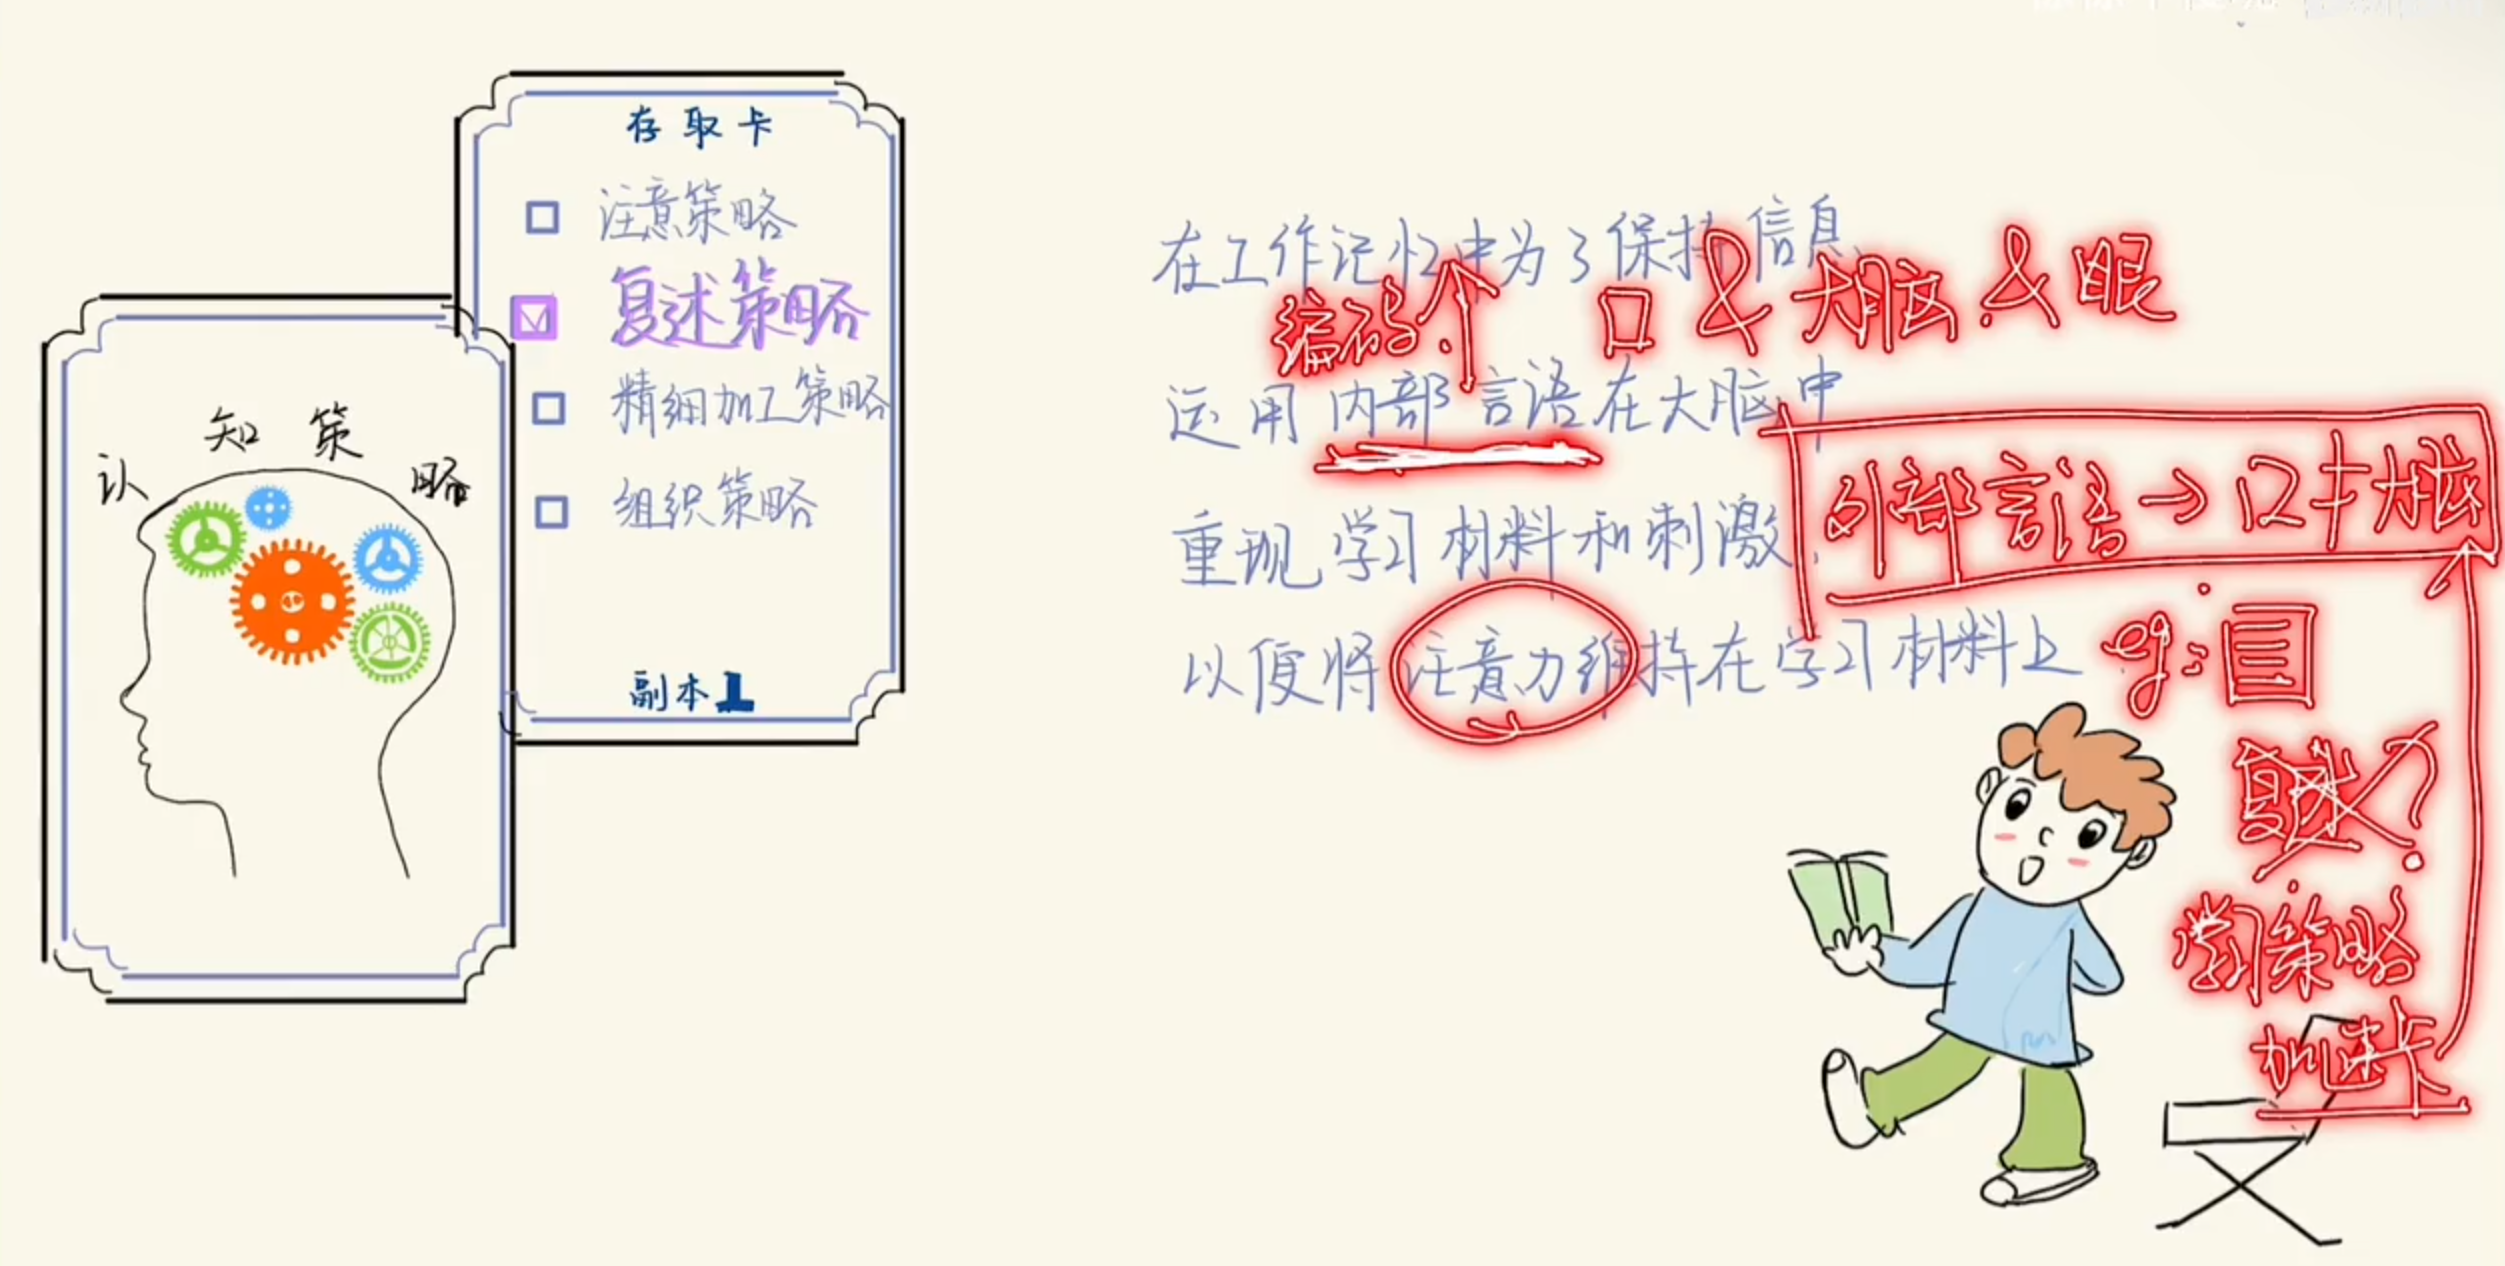 存取卡
注意策略
复述策略
精细加工策略
组织策略
副本1
认知策略
在工作记忆中为了保持信息
编码个 口 & 大脑 & 眼
运用内部言语在大脑中
外部言语→口+大脑
重现学习材料和刺激
以便将注意力维持在学习材料上
eg:
复述?
学习策略
加速卡